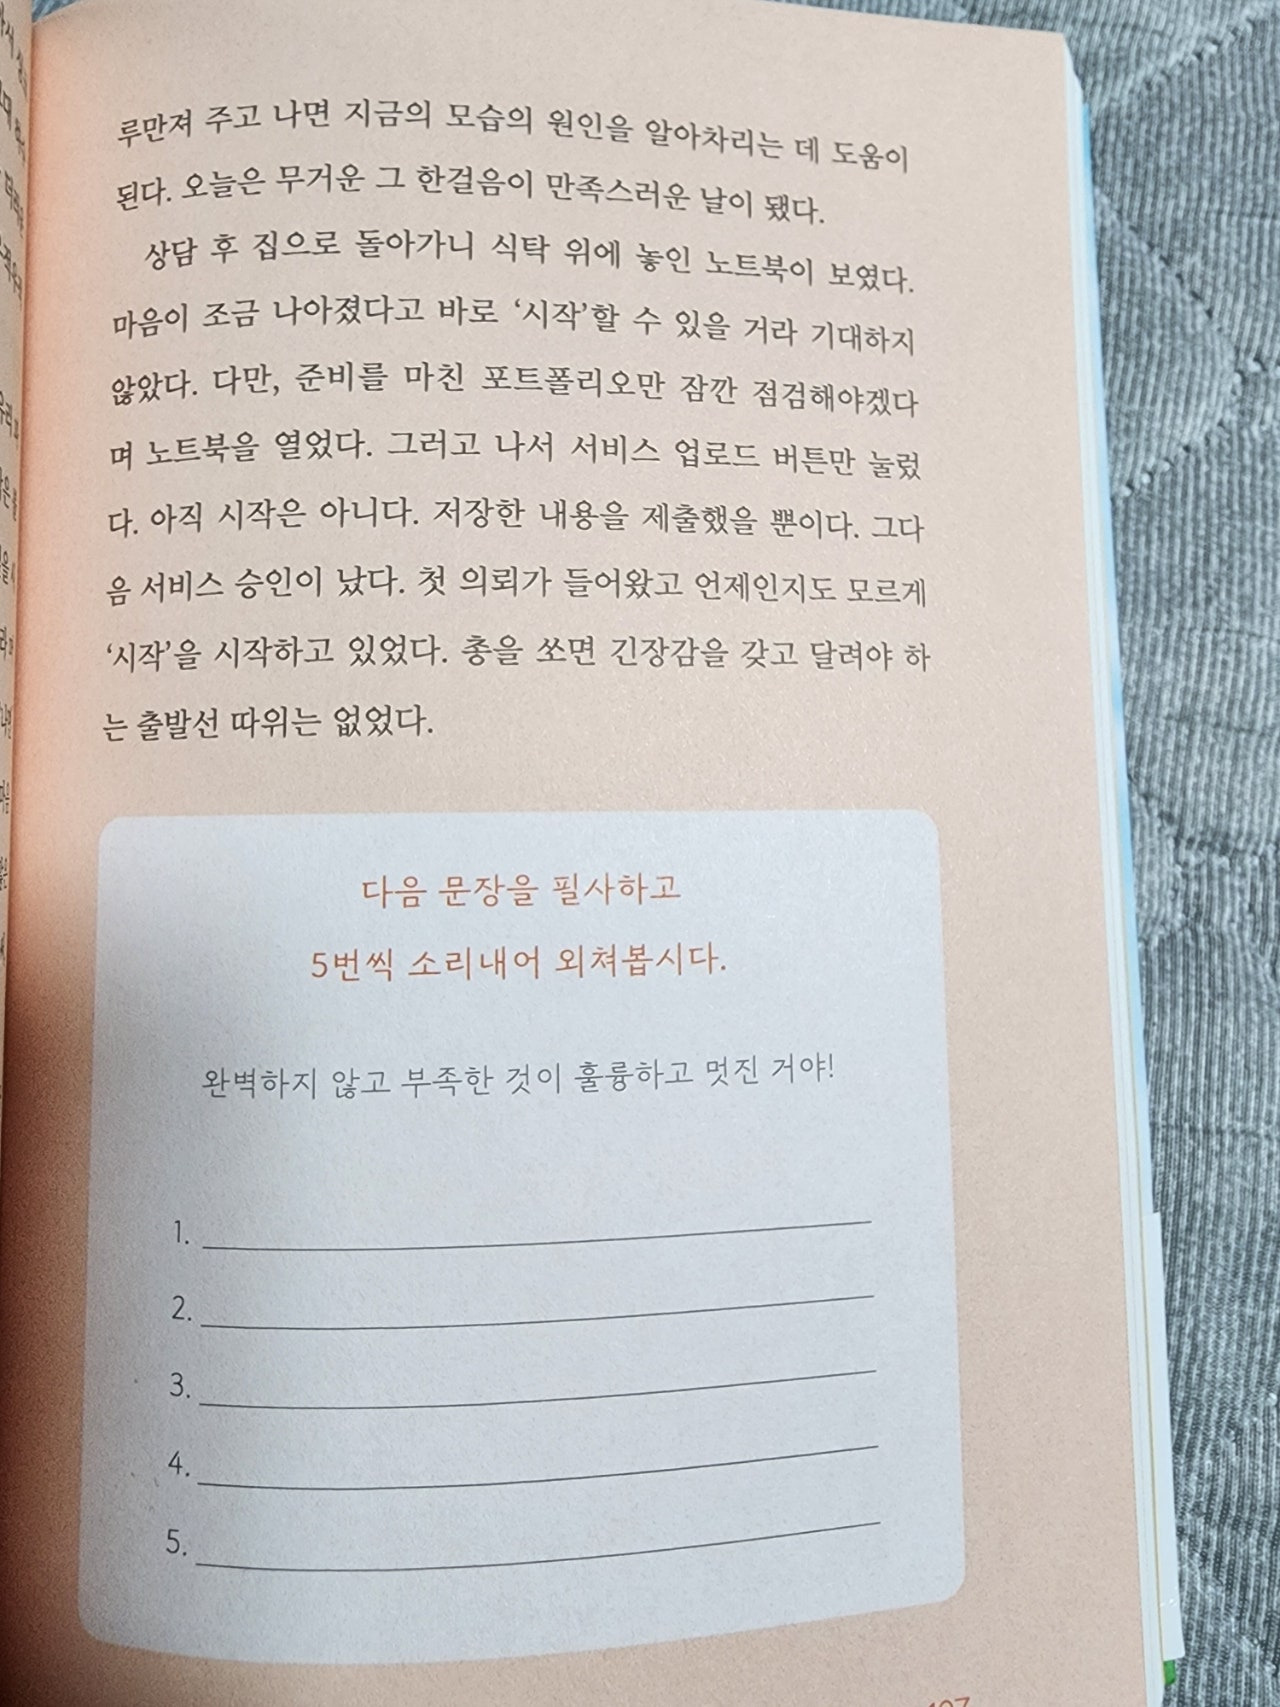 루만져 주고 나면 지금의 모습의 원인을 알아차리는 데 도움이
된다. 오늘은 무거운 그 한걸음이 만족스러운 날이 됐다.
상담 후 집으로 돌아가니 식탁 위에 놓인 노트북이 보였다.
마음이 조금 나아졌다고 바로 ‘시작’할 수 있을 거라 기대하지
않았다. 다만, 준비를 마친 포트폴리오만 잠깐 점검해야겠다
며 노트북을 열었다. 그러고 나서 서비스 업로드 버튼만 눌렀
다. 아직 시작은 아니다. 저장한 내용을 제출했을 뿐이다. 그다
음 서비스 승인이 났다. 첫 의뢰가 들어왔고 언제인지도 모르게
‘시작’을 시작하고 있었다. 총을 쏘면 긴장감을 갖고 달려야 하
는 출발선 따위는 없었다.
다음 문장을 필사하고
5번씩 소리내어 외쳐봅시다.
완벽하지 않고 부족한 것이 훌륭하고 멋진 거야!
1.
2.
3.
4.
5.